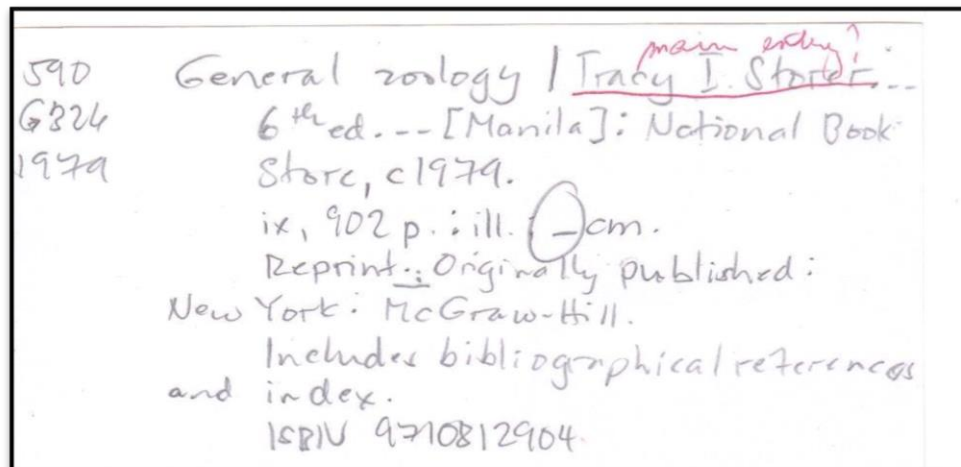 main entry?
590 General zoology / Tracy I. Storer...
G324 6th ed. -- [Manila] : National Book
1979 Store, c1979.
ix, 902 p. : ill. _ cm.
Reprint. : Originally published :
New York : McGraw-Hill.
Includes bibliographical references
and index.
ISBN 9710812904